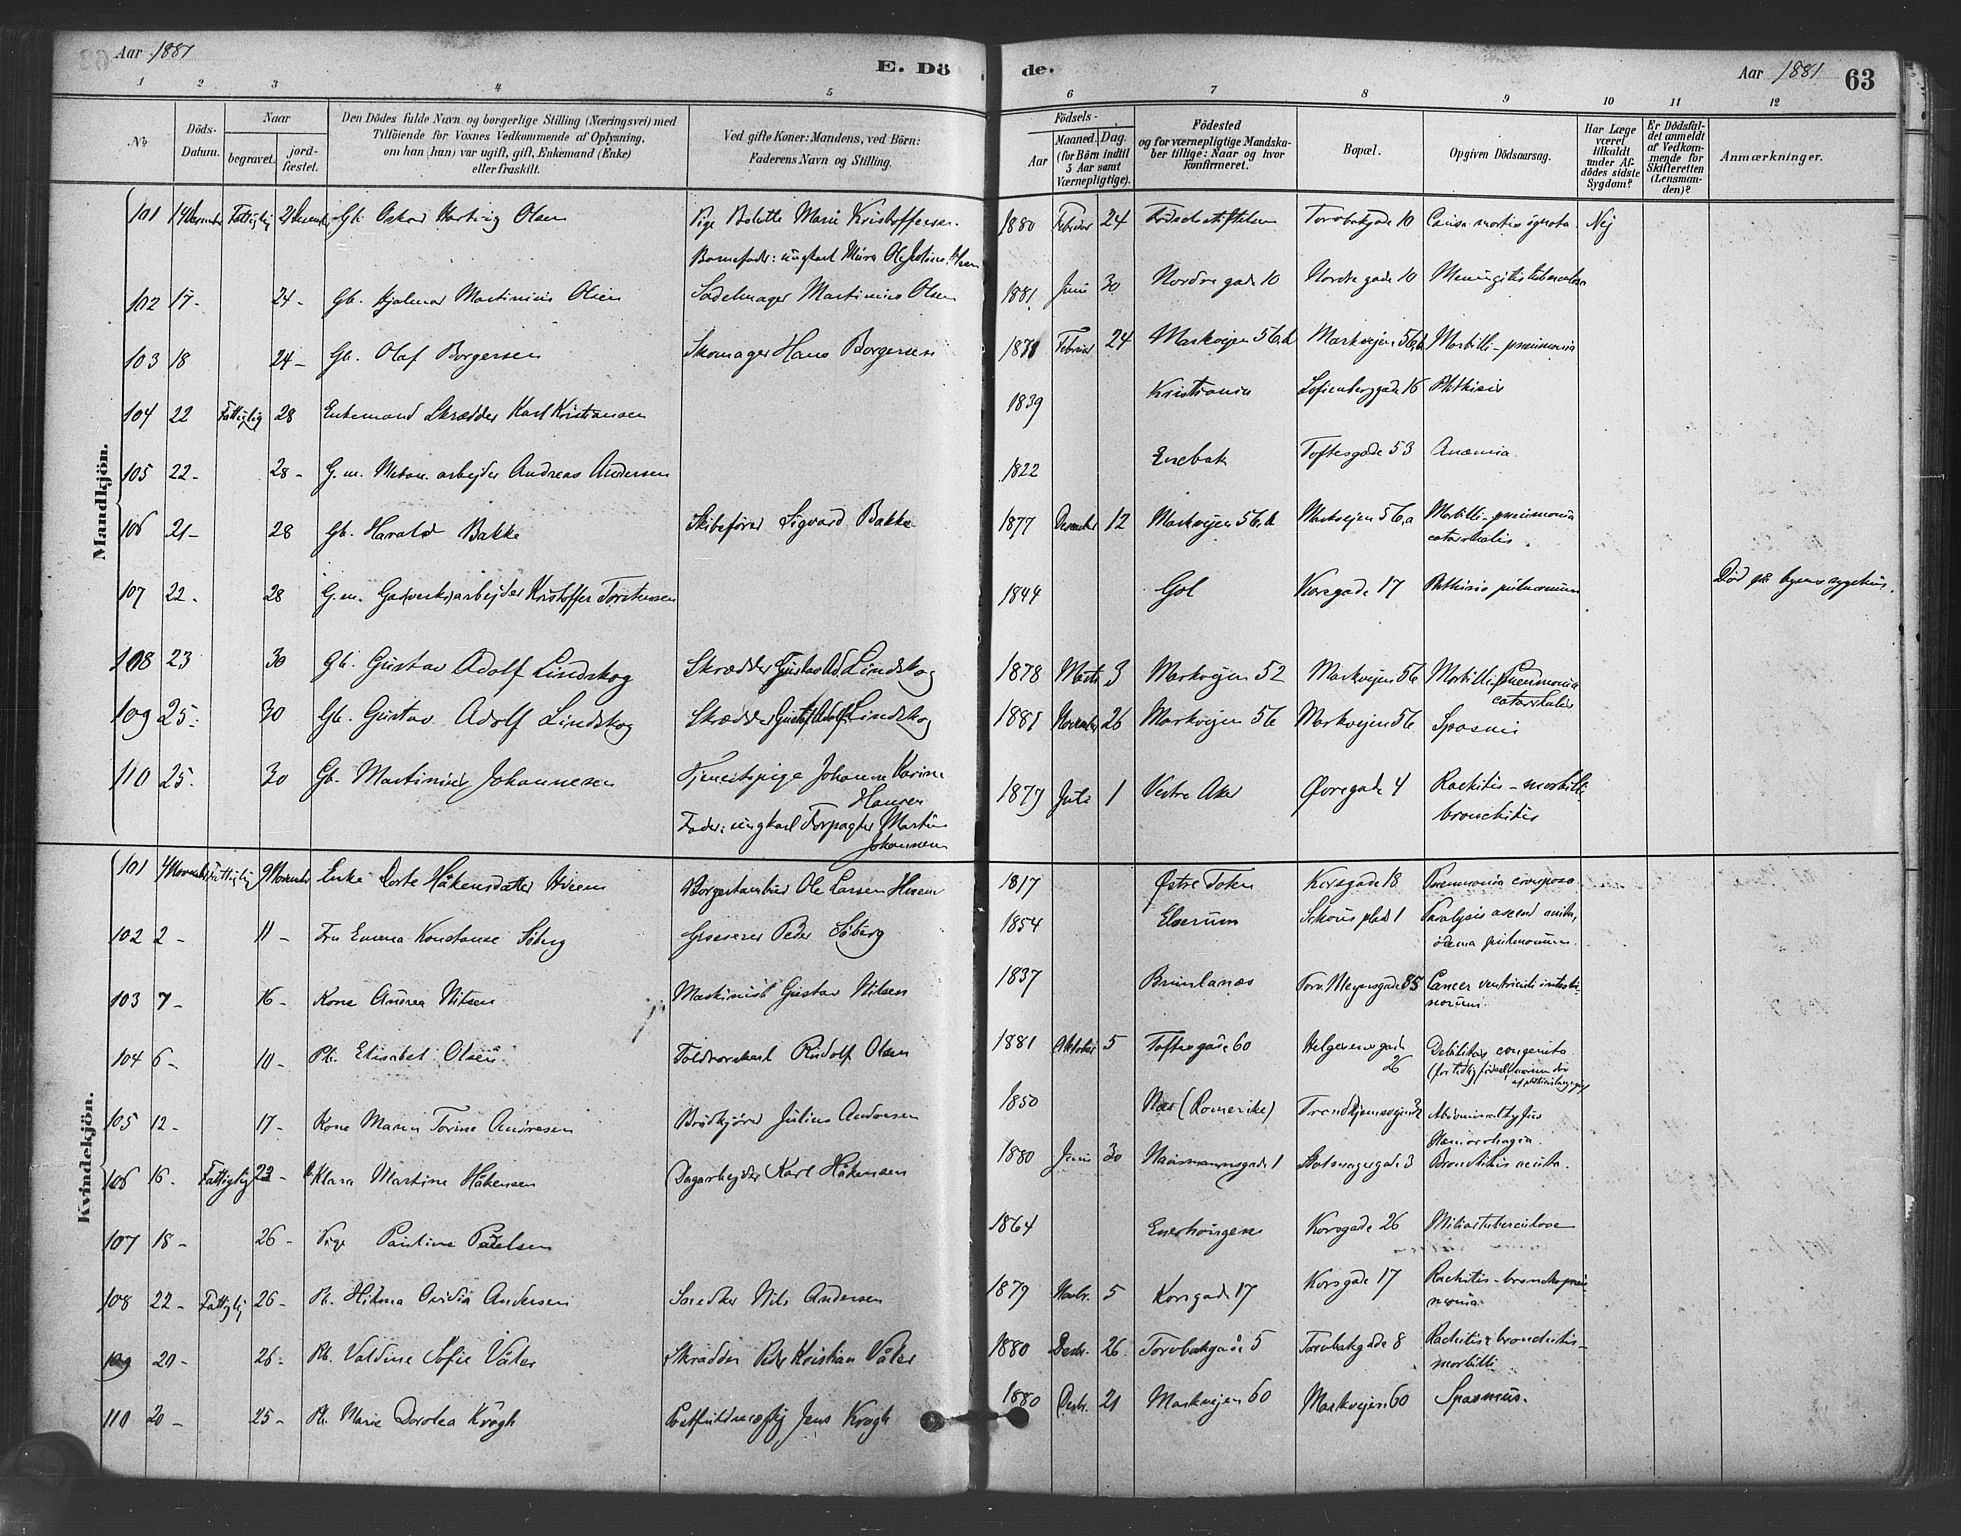 Aar 1881
E. Döde.
Aar 1881
63
1 2 3 4 5 6 7 8 9 10 11 12
No
Döds-Datum.
Naar
begravet.
jord-fæstet.
Den Dödes fulde Navn og borgerlige Stilling (Næringsvei) med
Tilföiende for Voxnes Vedkommende af Oplysning,
om han (hun) var ugift, gift, Enkemand (Enke)
eller fraskilt.
Ved gifte Koner: Mandens, ved Börn:
Faderens Navn og Stilling.
Födsels-
Aar
Maaned. Dag.
(for Börn indtil
5 Aar samt
Værnepligtige).
Födested
og for værnepligtige Mandska-
ber tillige: Naar og hvor
konfirmeret.
Bopæl.
Opgiven Dödsaarsag.
Har Læge
været
tilkaldt
under Af-
dödes sidste
Sygdom?
Er Dödsfal-
det anmeldt
af Vedkom-
mende for
Skifteretten
(Lensman-
den)?
Anmærkninger.
Mandkjön.
101 Fattiglig Gb. Oskar Hartvig Olsen Pige Bolette Marie Kristoffersen 1880 Februar 24 Födselsstiftelsen Torvbakgade 10 Causa mortis ignota. Nej
Barnefader: ungkarl Murer
102 17- 24- Gb. Hjalmar Martinius Olsen Sadelmager Martinius Olsen 1881 Juni 30 Nordregade 10 Nordregade 10 Meningitis tuberculosa
103 18 24- Gb. Olaf Borgersen Skomager Hans Borgersen Februar 24 Markvejen 56,b Markvejen 56,b Morbilli-pneumonia
104 22 Fattiglig 28 Enkemand Skrædder Karl Kristiansen 1839 Kristiania Sofienberggade 16 Phthisis
105 22- 28- G.m. arbejder Andreas Andersen 1822 Enebak Toftesgade 53 Anæmia
106 21- 28 Gb. Harald Bakke Skibsfører Sigvard Bakke 1877 December 12 Markvejen 56,a Markvejen 56,a Morbilli-pneumonia
catarrhalis
107 22- 28 G.m. Gasverksarbejder Kristoffer Torstensen 1844 Gol Korsgade 17 Phthisis pulmonum Död på sygehus.
108 23 30 Gb. Gustav Adolf Lindskog Skrædder Gustav Ad. Lindskog 1878 Marts 3 Markvejen 52 Markvejen 56 Morbilli Pneumonia
catarrhalis
109 25- 30 Gb. Gustav Adolf Lindskog Skrædder Gustaf Adolf Lindskog 1881 November 26 Markvejen 56 Markvejen 56 Spasmi
110 25- 30 Gb. Martinius Johannesen Tjenestpige Johanne Karine 1879 Juli 1 Vestre Aker Øvregade 4 Rachitis-morbilli-
Hansen
bronchitis
Fader: ungkarl Forpagter Martin
Johannesen
Kvindekjön.
101 4 November Fattiglig 9 November Enke Dorte Håkensdatter Ole Larsen 1817 Østre Toten Korsgade 18 Pneumonia crouposa
102 2- 11- Fru Emma Konstanse Söberg Grosserer Peder Söberg 1854 Elverum Schous plads 1 Paralysis ascend. acuta,
ödema pulmonum.
103 7- 16- Kone Andrea Nilsen Maskinist Gustav Nilsen 1837 Brunlanæs Torv. Meyersgade Cancer ventriculi
104 6- 10- Pb. Elisabet Olsen Toldvorskarl Rudolf Olsen 1881 Oktober 5 Toftesgade 60 Helgesensgade
26
Debilitas congenita
105 12- 17- Kone Maren Torine Andresen Brödkjörer Julius Andresen 1850 Næs (Romerike) Trondhjemsvejen Abdominaltyfus
Hæmorrhagia
106 16- Fattiglig 23- Klara Martine Håkensen Dagarbejder Karl Håkensen 1880 Juni 30 3 Bronchitis acuta.
107 18- 26- Pige Pauline Paulsen 1864 Korsgade 26 Miliartuberculose
108 22- Fattiglig 26- Pb. Hilma Ovidia Andersen Snedker Nils Andersen 1879 Novbr. 5 Korsgade 17 Korsgade 17 Rachitis-bronchopneu
monia
109 20- 26- Pb. Valdine Sofie Våler Skrædder Peder Kristian Våler 1880 Decbr. 26. Torvbakgade 5 Torvbakgade 8 Rachitis bronchitis-
morbilli
110 20- 25- Pb. Marie Dorotea Krogh Jens Krogh 1880 Decbr. 21 Markvejen 60 Markvejen 60 Spasmus.